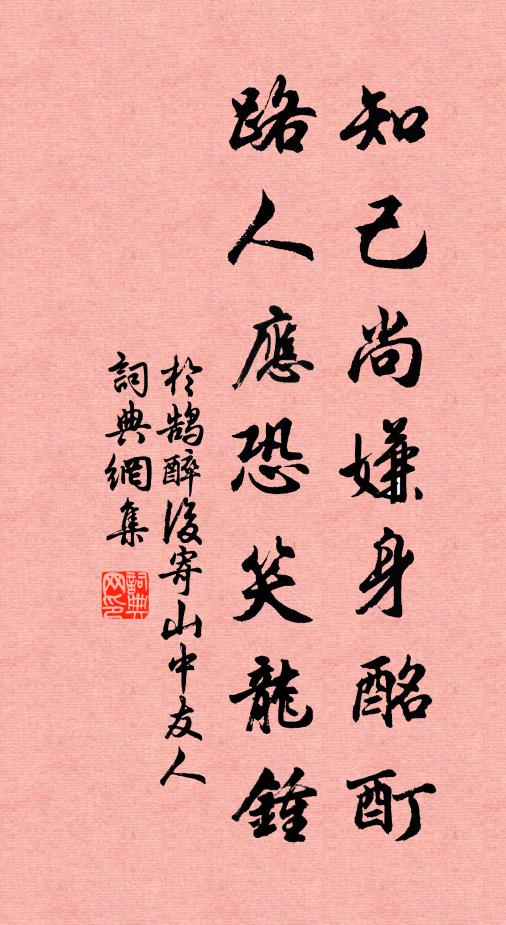 知己尚嫌身酩酊
路人應恐笑龍鍾
於鵠醉後寄山中友人
詞典網集
詞典网印